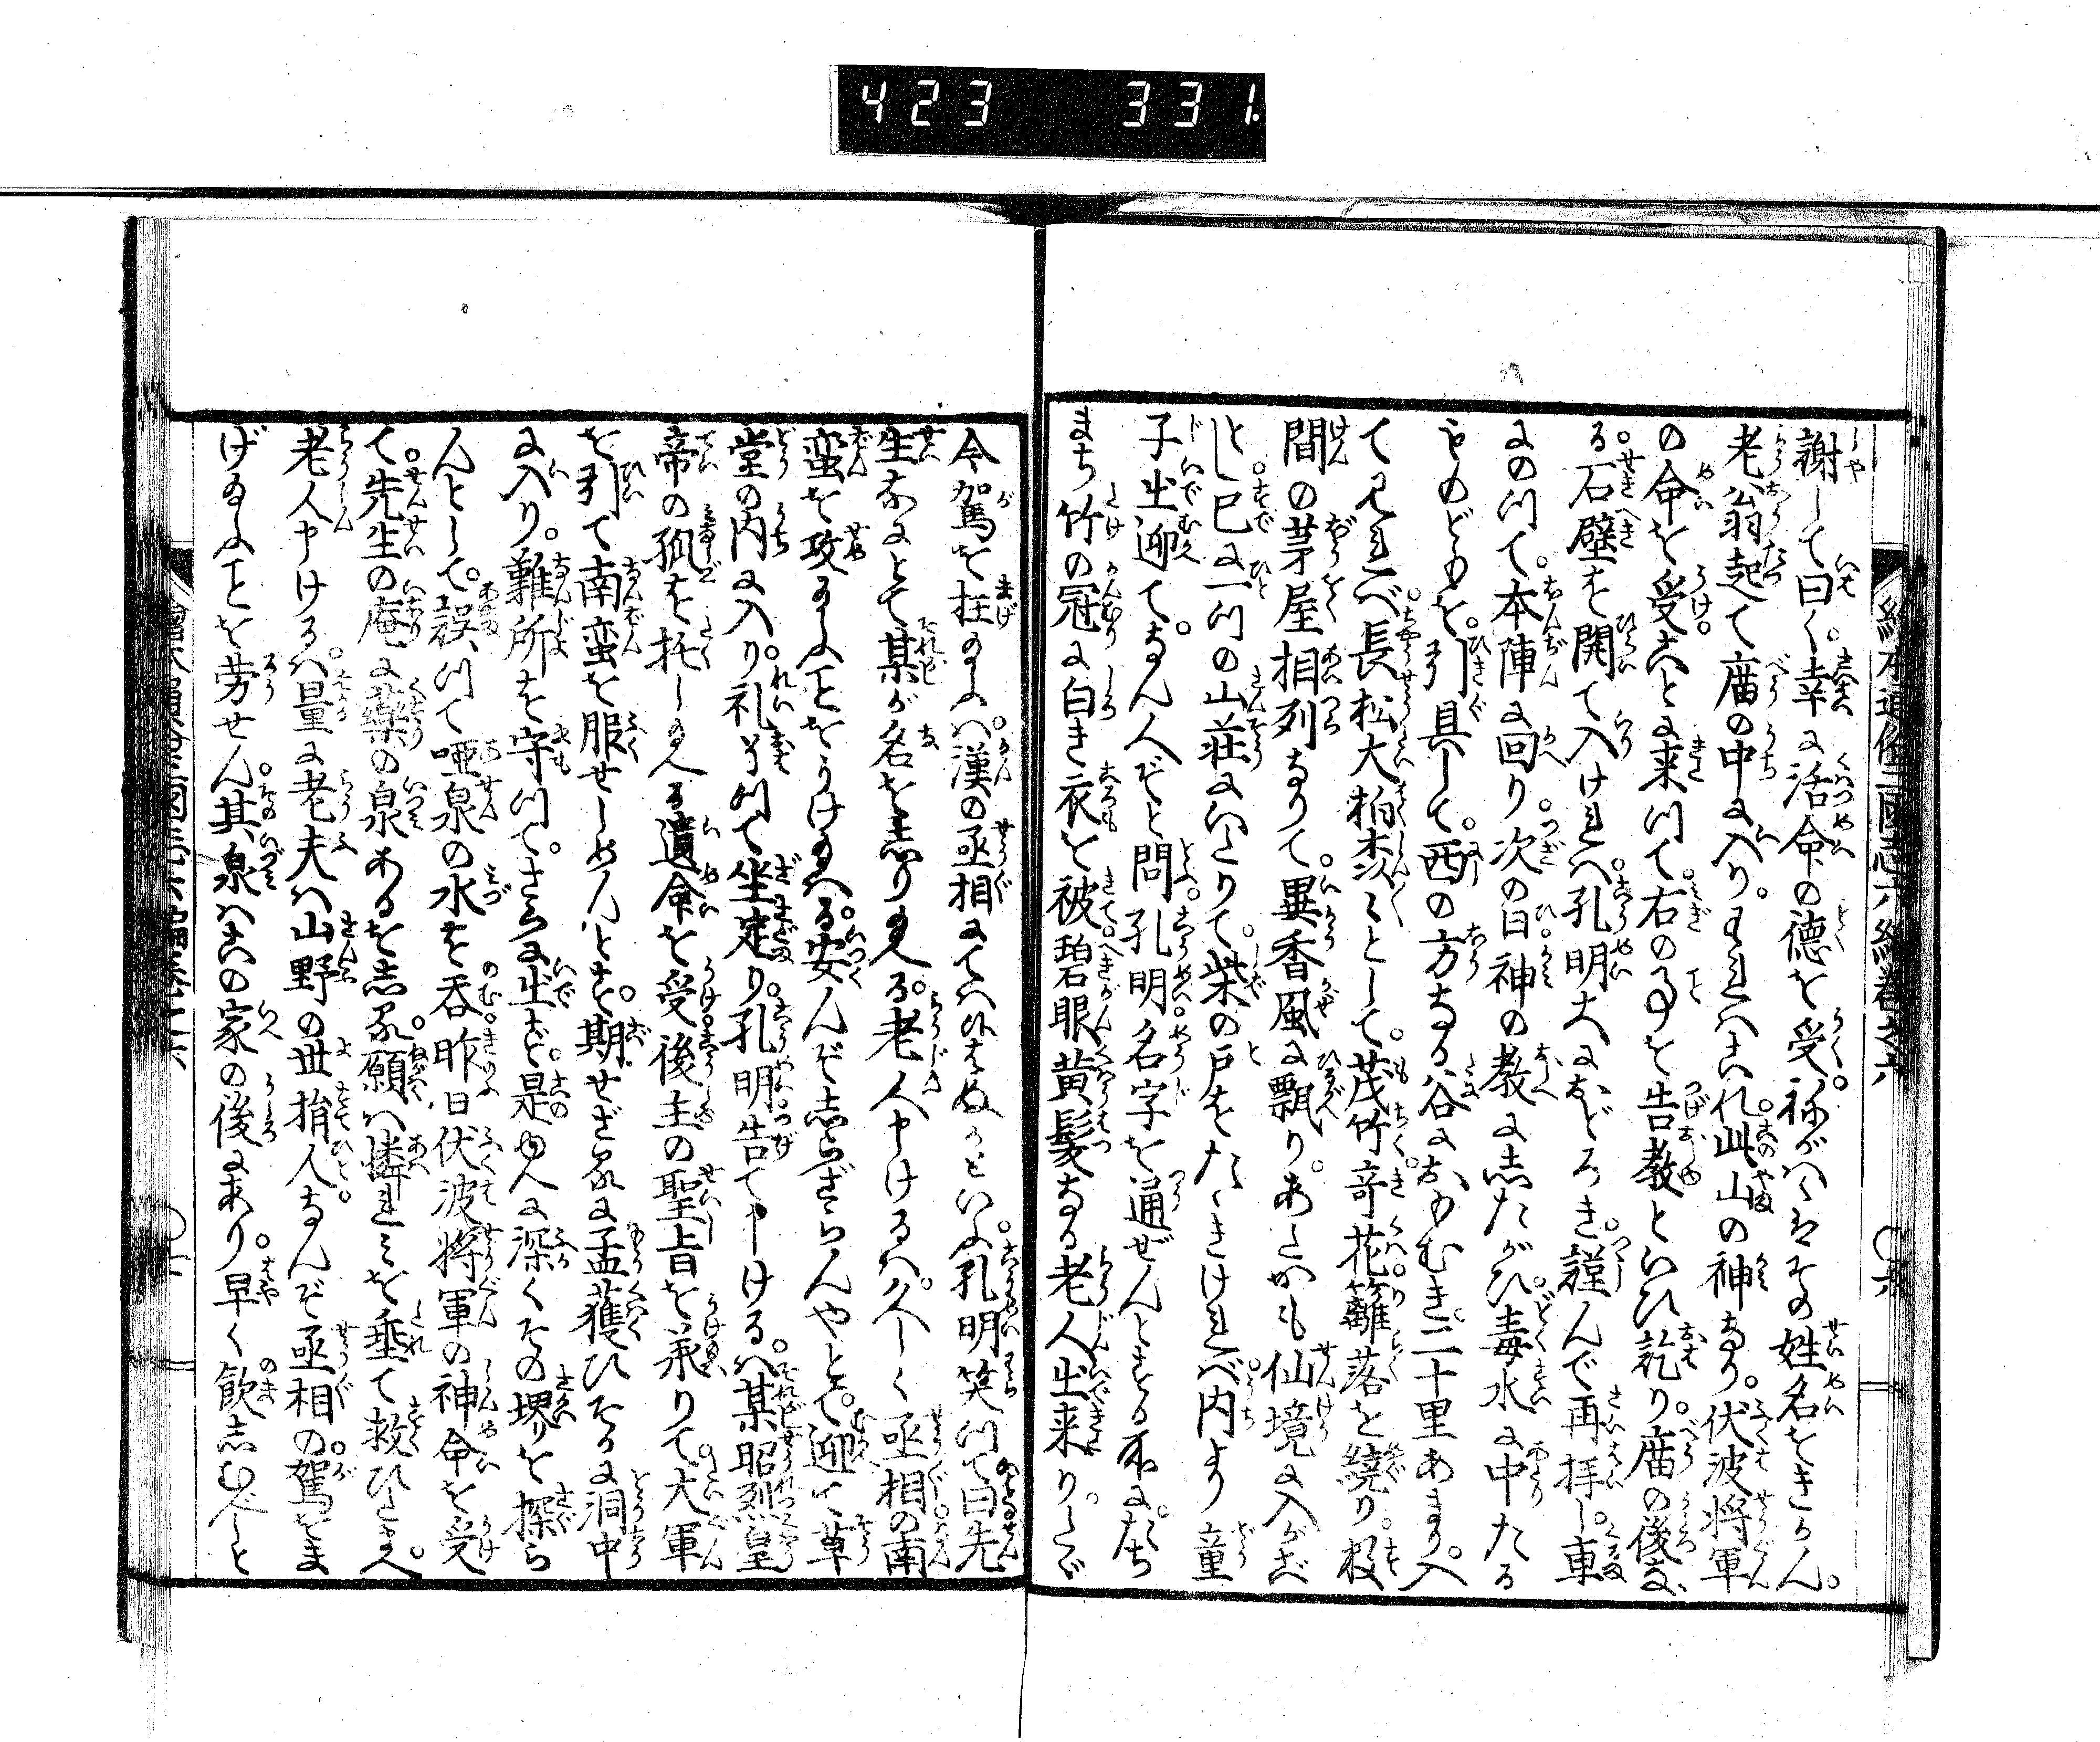 423 331.
謝して曰く。幸に活命の徳を受く。祢がハくハその姓名をきかん。
老翁起て廟の中に入り。われハこれ此山の神なり。伏波将軍
の命を受。こゝに来つて右の事を告教といひ訖り。廟の後な
る。石壁を開て入けれバ。孔明大におどろき。謹んで再拝し。車
にのつて。本陣に回り。次の日。神の教にしたがひ。毒水に中たる
ものどもを。引具して。西の方なる谷におもむき。二十里あまり入
て見れバ。長松大柏森々として。茂竹奇花。籬落を繞り。数
間の茅屋相列なりて。異香風に飄り。あたかも仙境に入がご
とし。已に一つの山荘にいたりて。柴の戸をたゝきけれバ。内より童
子出迎て。なん人ぞと問。孔明。名字を通ぜんとする所に。たち
まち竹の冠に白き衣を被。碧眼黄髪なる老人出来り。たゞ
今駕を抂るハ。漢の丞相にてハ候はぬかといふ。孔明笑つて曰先
生なにとて某が名をしり玉へる。老人申けるハ。久しく丞相の南
蛮を攻玉ふことをうけ玉ハる。安んぞしらざらんやとて。迎て草
堂の内に入り。礼をハつて坐定り。孔明告て申けるハ。某昭烈皇
帝の孤を托し玉へる遺命を受。後主の聖旨を承りて。大軍
を引て南蛮を服せしめんとす。期せざるに孟獲ひそかに洞中
に入り。難所を守つて。さらに出ず。是ゆへに深くその堺を探ら
んとして。誤つて唖泉の水を呑。昨日伏波将軍の神命を受
て。先生の庵に薬の泉あるをしる。願ハ憐れミを垂て救ひたまへ。
老人申けるハ。量に老夫ハ山野の世捐人。なんぞ丞相の。駕をま
げ玉ふことを労せん。其泉ハこの家の後にあり。早く飲しむべしと